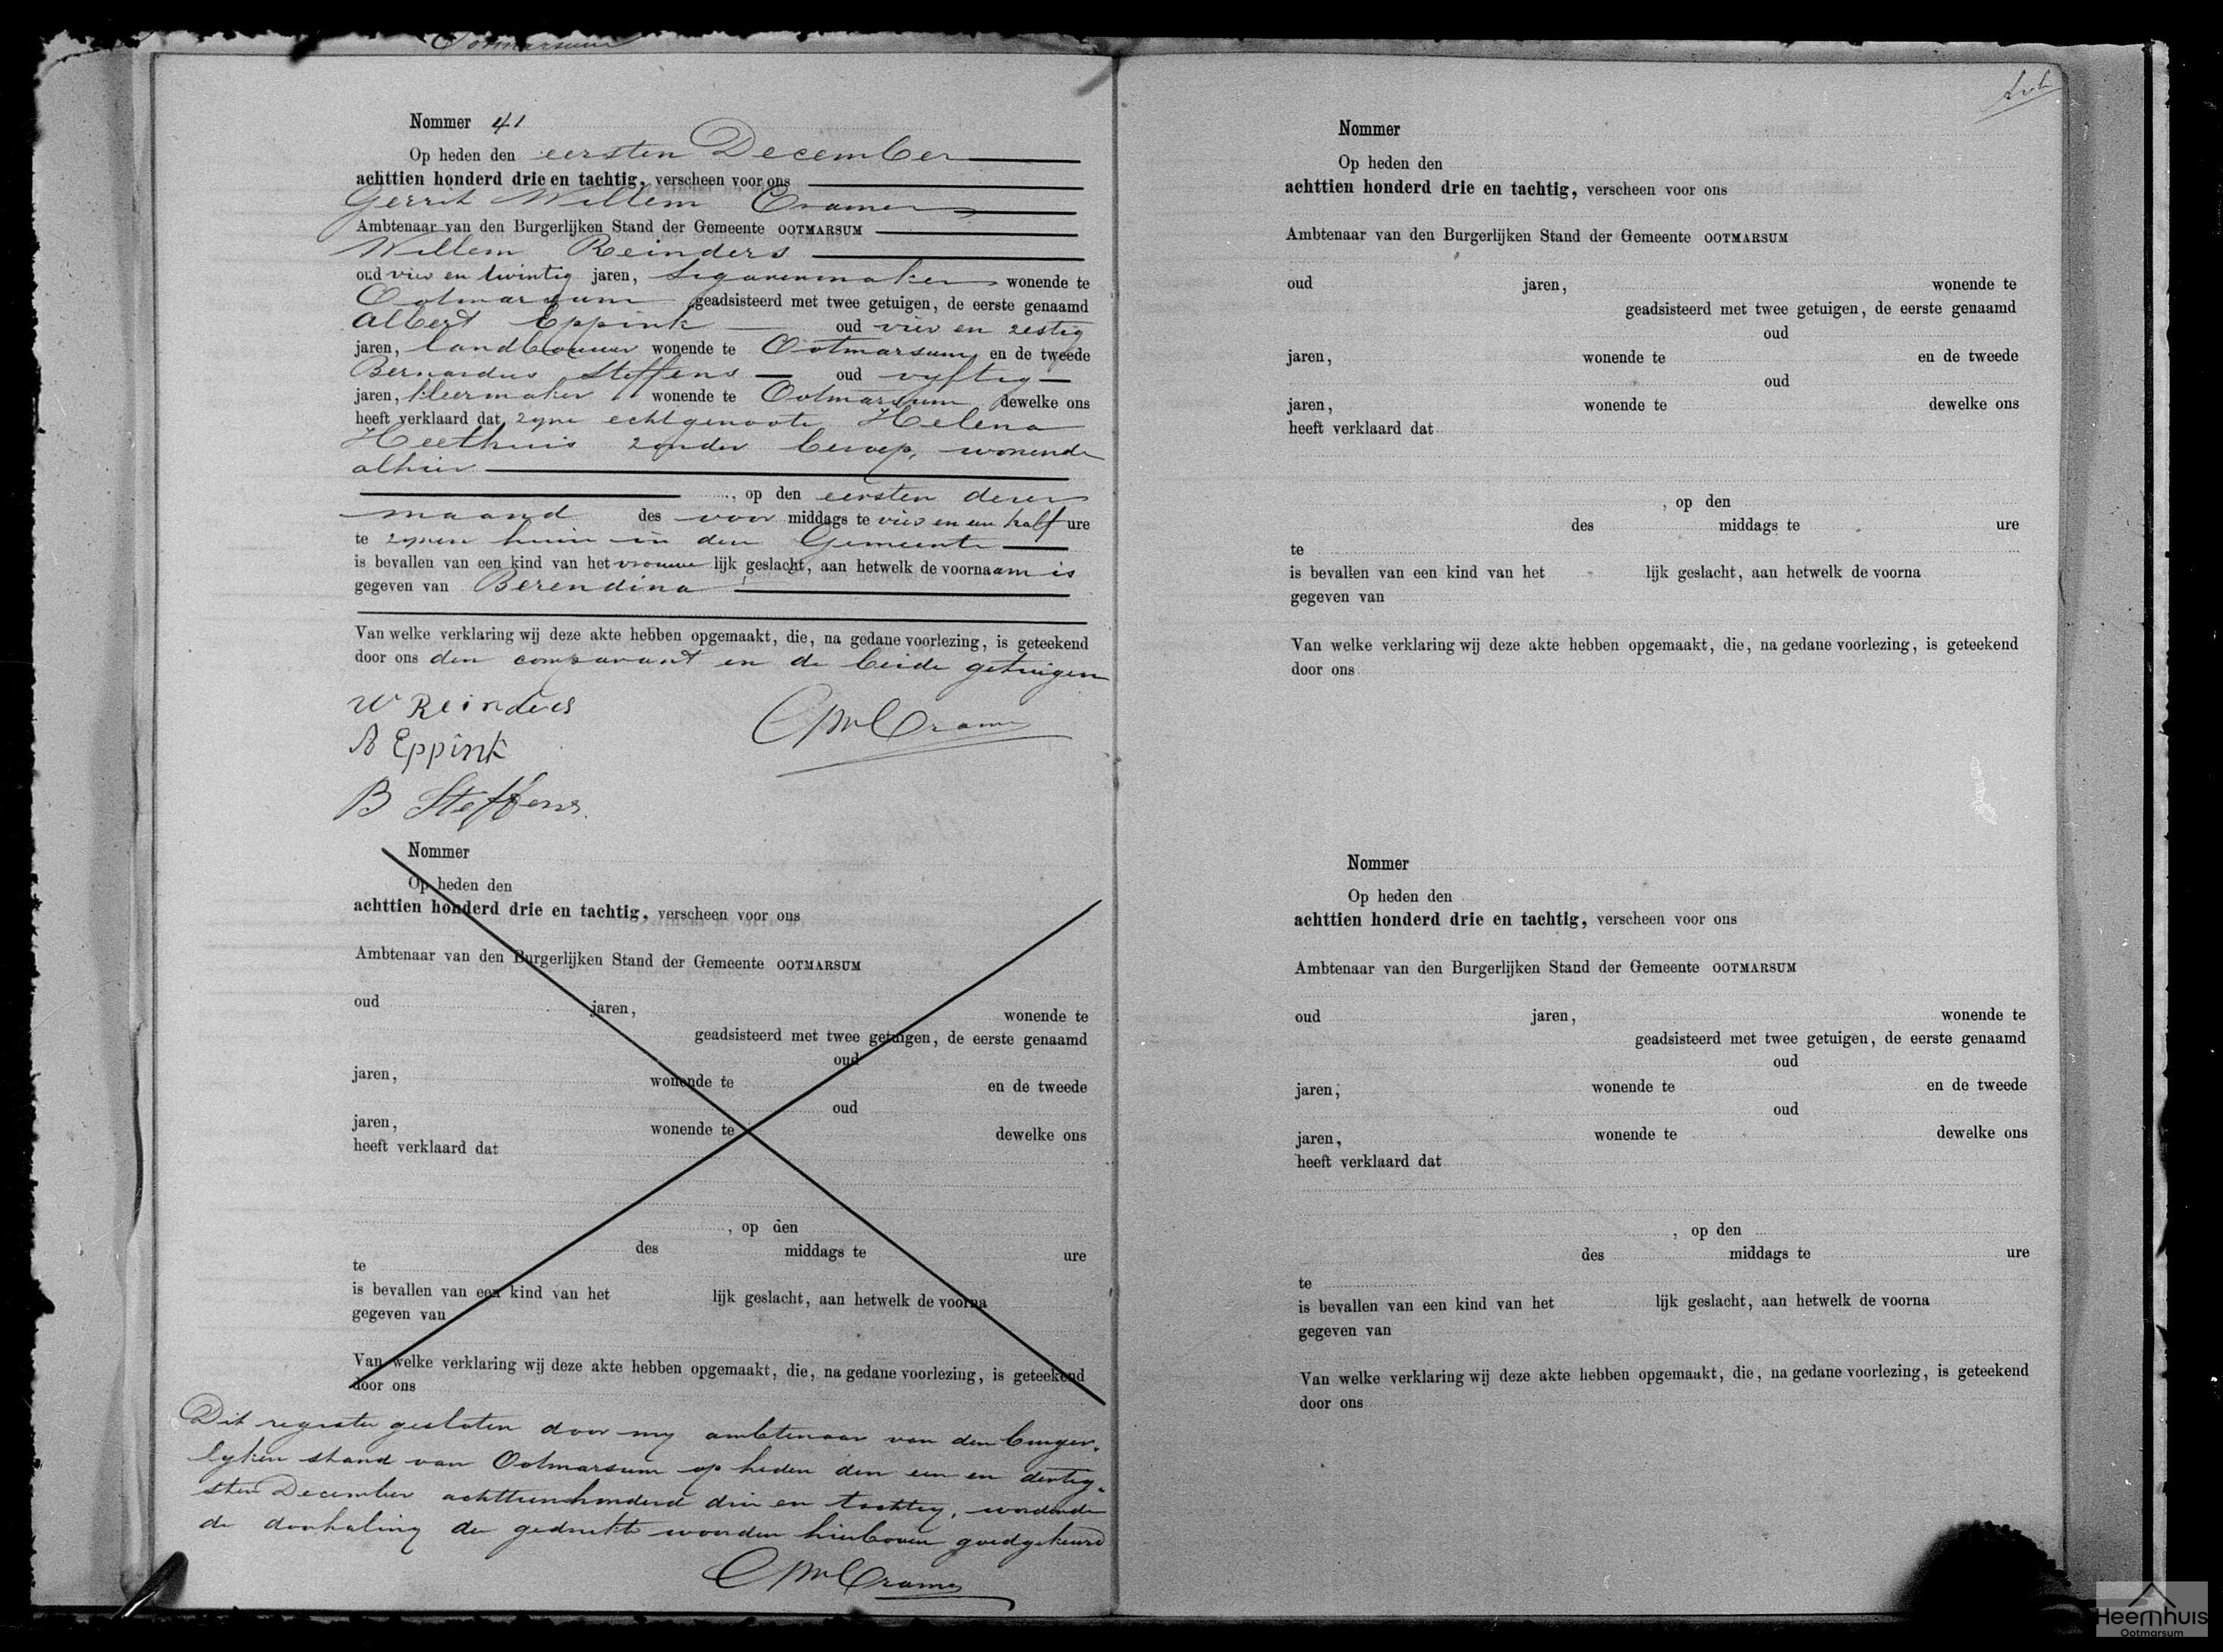 Ootmarsum
Nommer 41
Op heden den eersten December
achttien honderd drie en tachtig, verscheen voor ons
Gerrit Willem Cramer
Ambtenaar van den Burgerlijken Stand der Gemeente OOTMARSUM
Willem Reinders
oud vier en twintig jaren, sigarenmaker wonende te
Ootmarsum geadsisteerd met twee getuigen, de eerste genaamd
Albert Eppink oud vier en zestig
jaren, landbouwer wonende te Ootmarsum, en de tweede
Bernardus Steffens oud vyftig
jaren, kleermaker wonende te Ootmarsum dewelke ons
heeft verklaard dat zyne echtgenoote Helena
Heethuis zonder beroep, wonende
alhier
, op den eersten dezer
maand des voor middags te vier en een half ure
te zynen huize in deze Gemeente
is bevallen van een kind van het vrouwelijk geslacht, aan hetwelk de voornaam is
gegeven van Berendina
Van welke verklaring wij deze akte hebben opgemaakt, die, na gedane voorlezing, is geteekend
door ons den comparant en de beide getuigen
W Reinders
A Eppink
B Steffens.
GWCramer
Nommer
Op heden den
achttien honderd drie en tachtig, verscheen voor ons
Ambtenaar van den Burgerlijken Stand der Gemeente OOTMARSUM
oud jaren, wonende te
geadsisteerd met twee getuigen, de eerste genaamd
oud
jaren, wonende te en de tweede
oud
jaren, wonende te dewelke ons
heeft verklaard dat
, op den
des middags te ure
te
is bevallen van een kind van het lijk geslacht, aan hetwelk de voorna
gegeven van
Van welke verklaring wij deze akte hebben opgemaakt, die, na gedane voorlezing, is geteekend
door ons
Dit register gesloten door my ambtenaar van den burger-
lyken stand van Ootmarsum op heden den een en dertig-
sten December achttienhonderd drie en tachtig, wordende
de doorhaling der gedrukte woorden hierboven goedgekeurd
GWCramer
Nommer
Op heden den
achttien honderd drie en tachtig, verscheen voor ons
Ambtenaar van den Burgerlijken Stand der Gemeente OOTMARSUM
oud jaren, wonende te
geadsisteerd met twee getuigen, de eerste genaamd
oud
jaren, wonende te en de tweede
oud
jaren, wonende te dewelke ons
heeft verklaard dat
, op den
des middags te ure
te
is bevallen van een kind van het lijk geslacht, aan hetwelk de voorna
gegeven van
Van welke verklaring wij deze akte hebben opgemaakt, die, na gedane voorlezing, is geteekend
door ons
Nommer
Op heden den
achttien honderd drie en tachtig, verscheen voor ons
Ambtenaar van den Burgerlijken Stand der Gemeente OOTMARSUM
oud jaren, wonende te
geadsisteerd met twee getuigen, de eerste genaamd
oud
jaren, wonende te en de tweede
oud
jaren, wonende te dewelke ons
heeft verklaard dat
, op den
des middags te ure
te
is bevallen van een kind van het lijk geslacht, aan hetwelk de voorna
gegeven van
Van welke verklaring wij deze akte hebben opgemaakt, die, na gedane voorlezing, is geteekend
door ons
Heemhuis
Ootmarsum